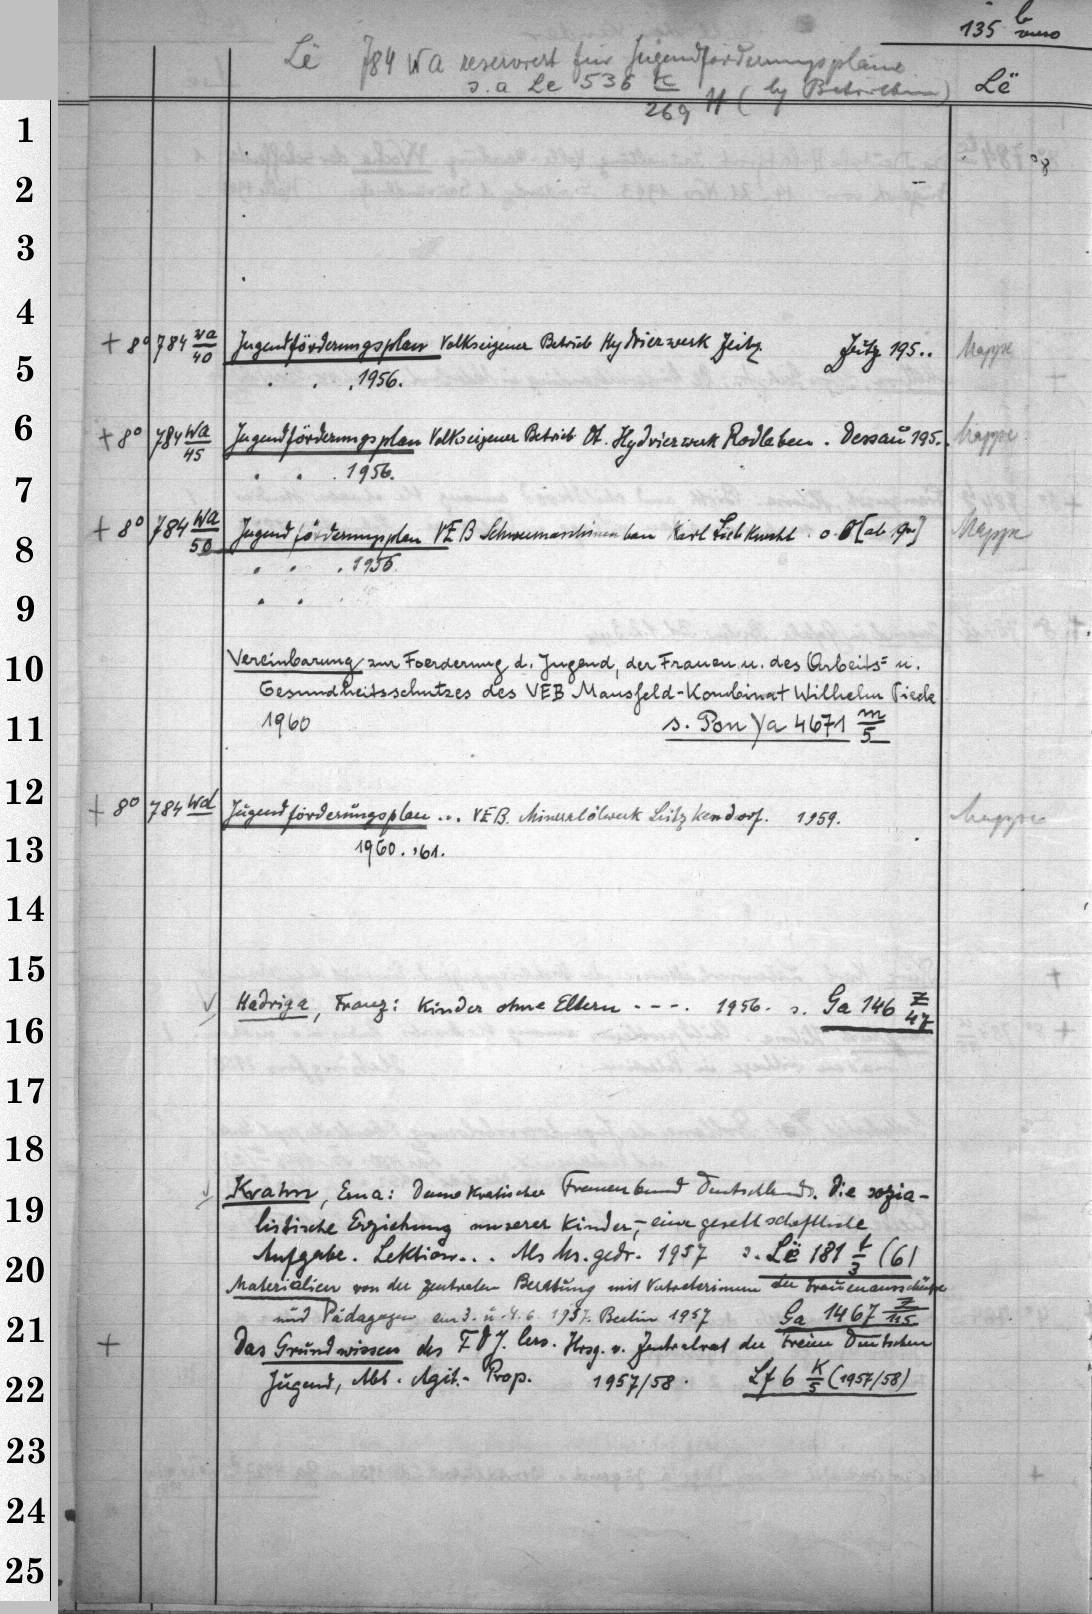 135 b
vero
Lë 784 Wa reserviert für Jugendförderungspläne
s. a Le 536 K/269 (by Betrieben) Lë
1
2
3
4
+ 8° 784 wa/40 Jugendförderungsplan Volkseigener Betrieb Hydrierwerk Zeitz. Zeitz 195.. Mappe
5
. . . 1956.
6
+ 8° 784 Wa/45 Jugendförderungsplan Volkseigener Betrieb Dt. Hydrierwerk Rodleben. Dessau 195.. Mappe
7
. . . 1956.
+ 8° 784 Wa/50 Jugendförderungsplan VEB Schwermaschinenbau Karl Liebknecht. o. O [ab. gr.] Mappe
8
. . . 1956.
9
. .
10
Vereinbarung zur Foerderung d. Jugend, der Frauen u. des Arbeits= u.
Gesundheitsschutzes des VEB Mansfeld-Kombinat Wilhelm Pieck
11
1960 s. Pon Ya 4671 m/5
12
+ 8° 784 Wd Jugendförderungsplan ... VEB. Mineralölwerk Lützkendorf. 1959. Mappe
13
1960. '61.
14
15
Hadriga, Franz: Kinder ohne Eltern - - - . 1956. s. Ga 146 Z/47
16
17
18
19
Krahn, Erna: Demokratischer Frauenbund Deutschlands. Die sozia-
listische Erziehung unserer Kinder, - eine gesellschaftliche
20
Aufgabe. Lektion... Als Ms. gedr. 1957 s. Lë 181 t/3 (6)
Materialien von der zentralen Beratung mit Vertreterinnen der Frauenausschüsse
21
und Pädagogen am 3. u. 4. 6. 1957. Berlin 1957 Ga 1467 Z/115
+ Das Grundwissen des FDJlers. Hrsg. v. Zentralrat der Freien Deutschen
22
Jugend, Abt. Agit.- Prop. 1957/58. Lf 6 K/5 (1957/58)
23
24
25